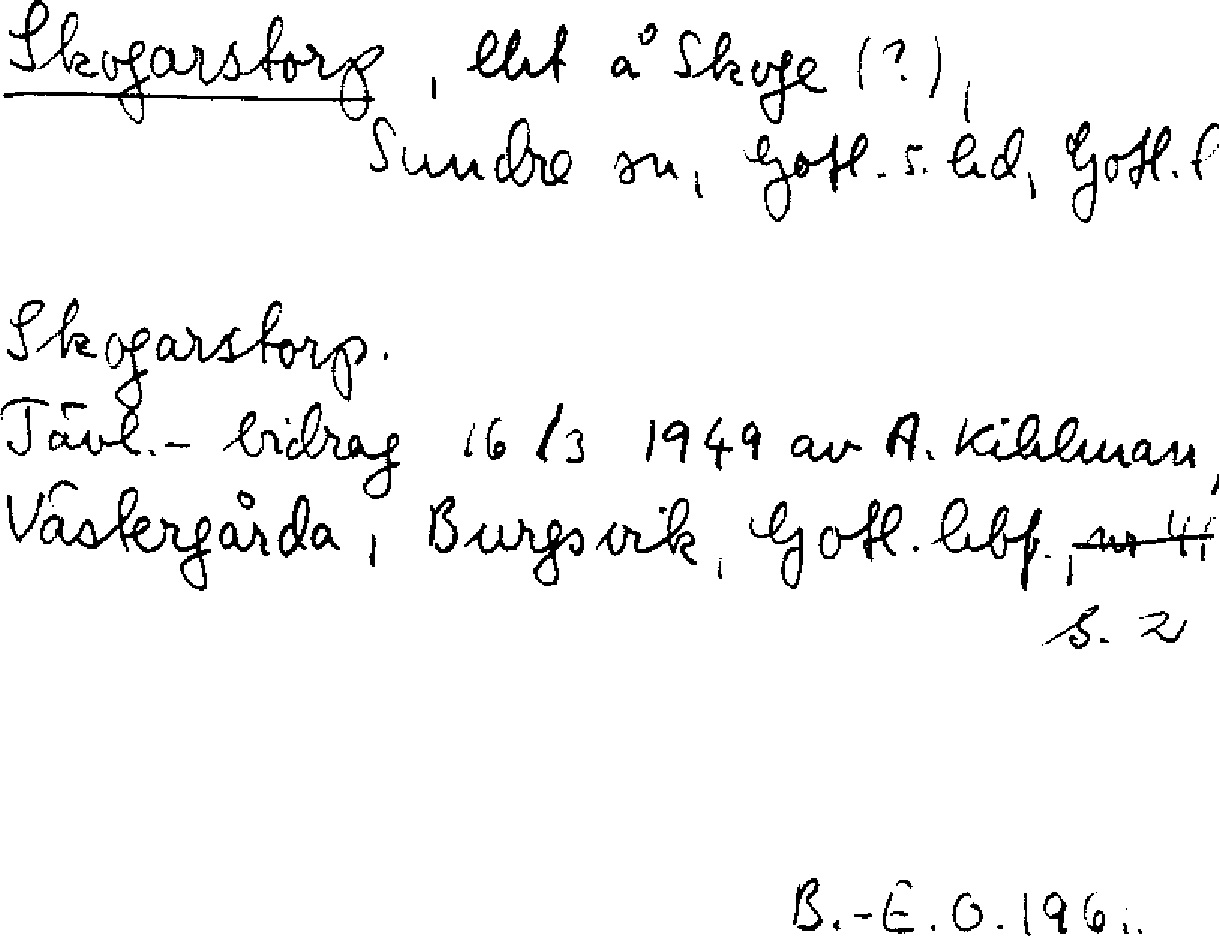 Skogarstorp, lht å Skoge (?),
Sundre sn, Gotl. s. hd, Gotl. l
Skogarstorp.
Tävl.- bidrag 16/3 1949 av A. Kihlman,
Västergårda, Burgsvik, Gotl. hbf., nr 4,
s. 2
B.-E. O. 196